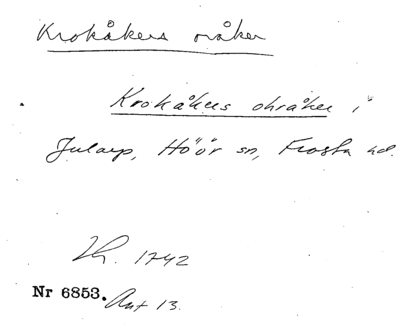 Krokåkers oråker
Krokåkers ohråker i
Jularp, Höör sn, Frosta hd.
Lh. 1742
Nr 6853. Ant 13.